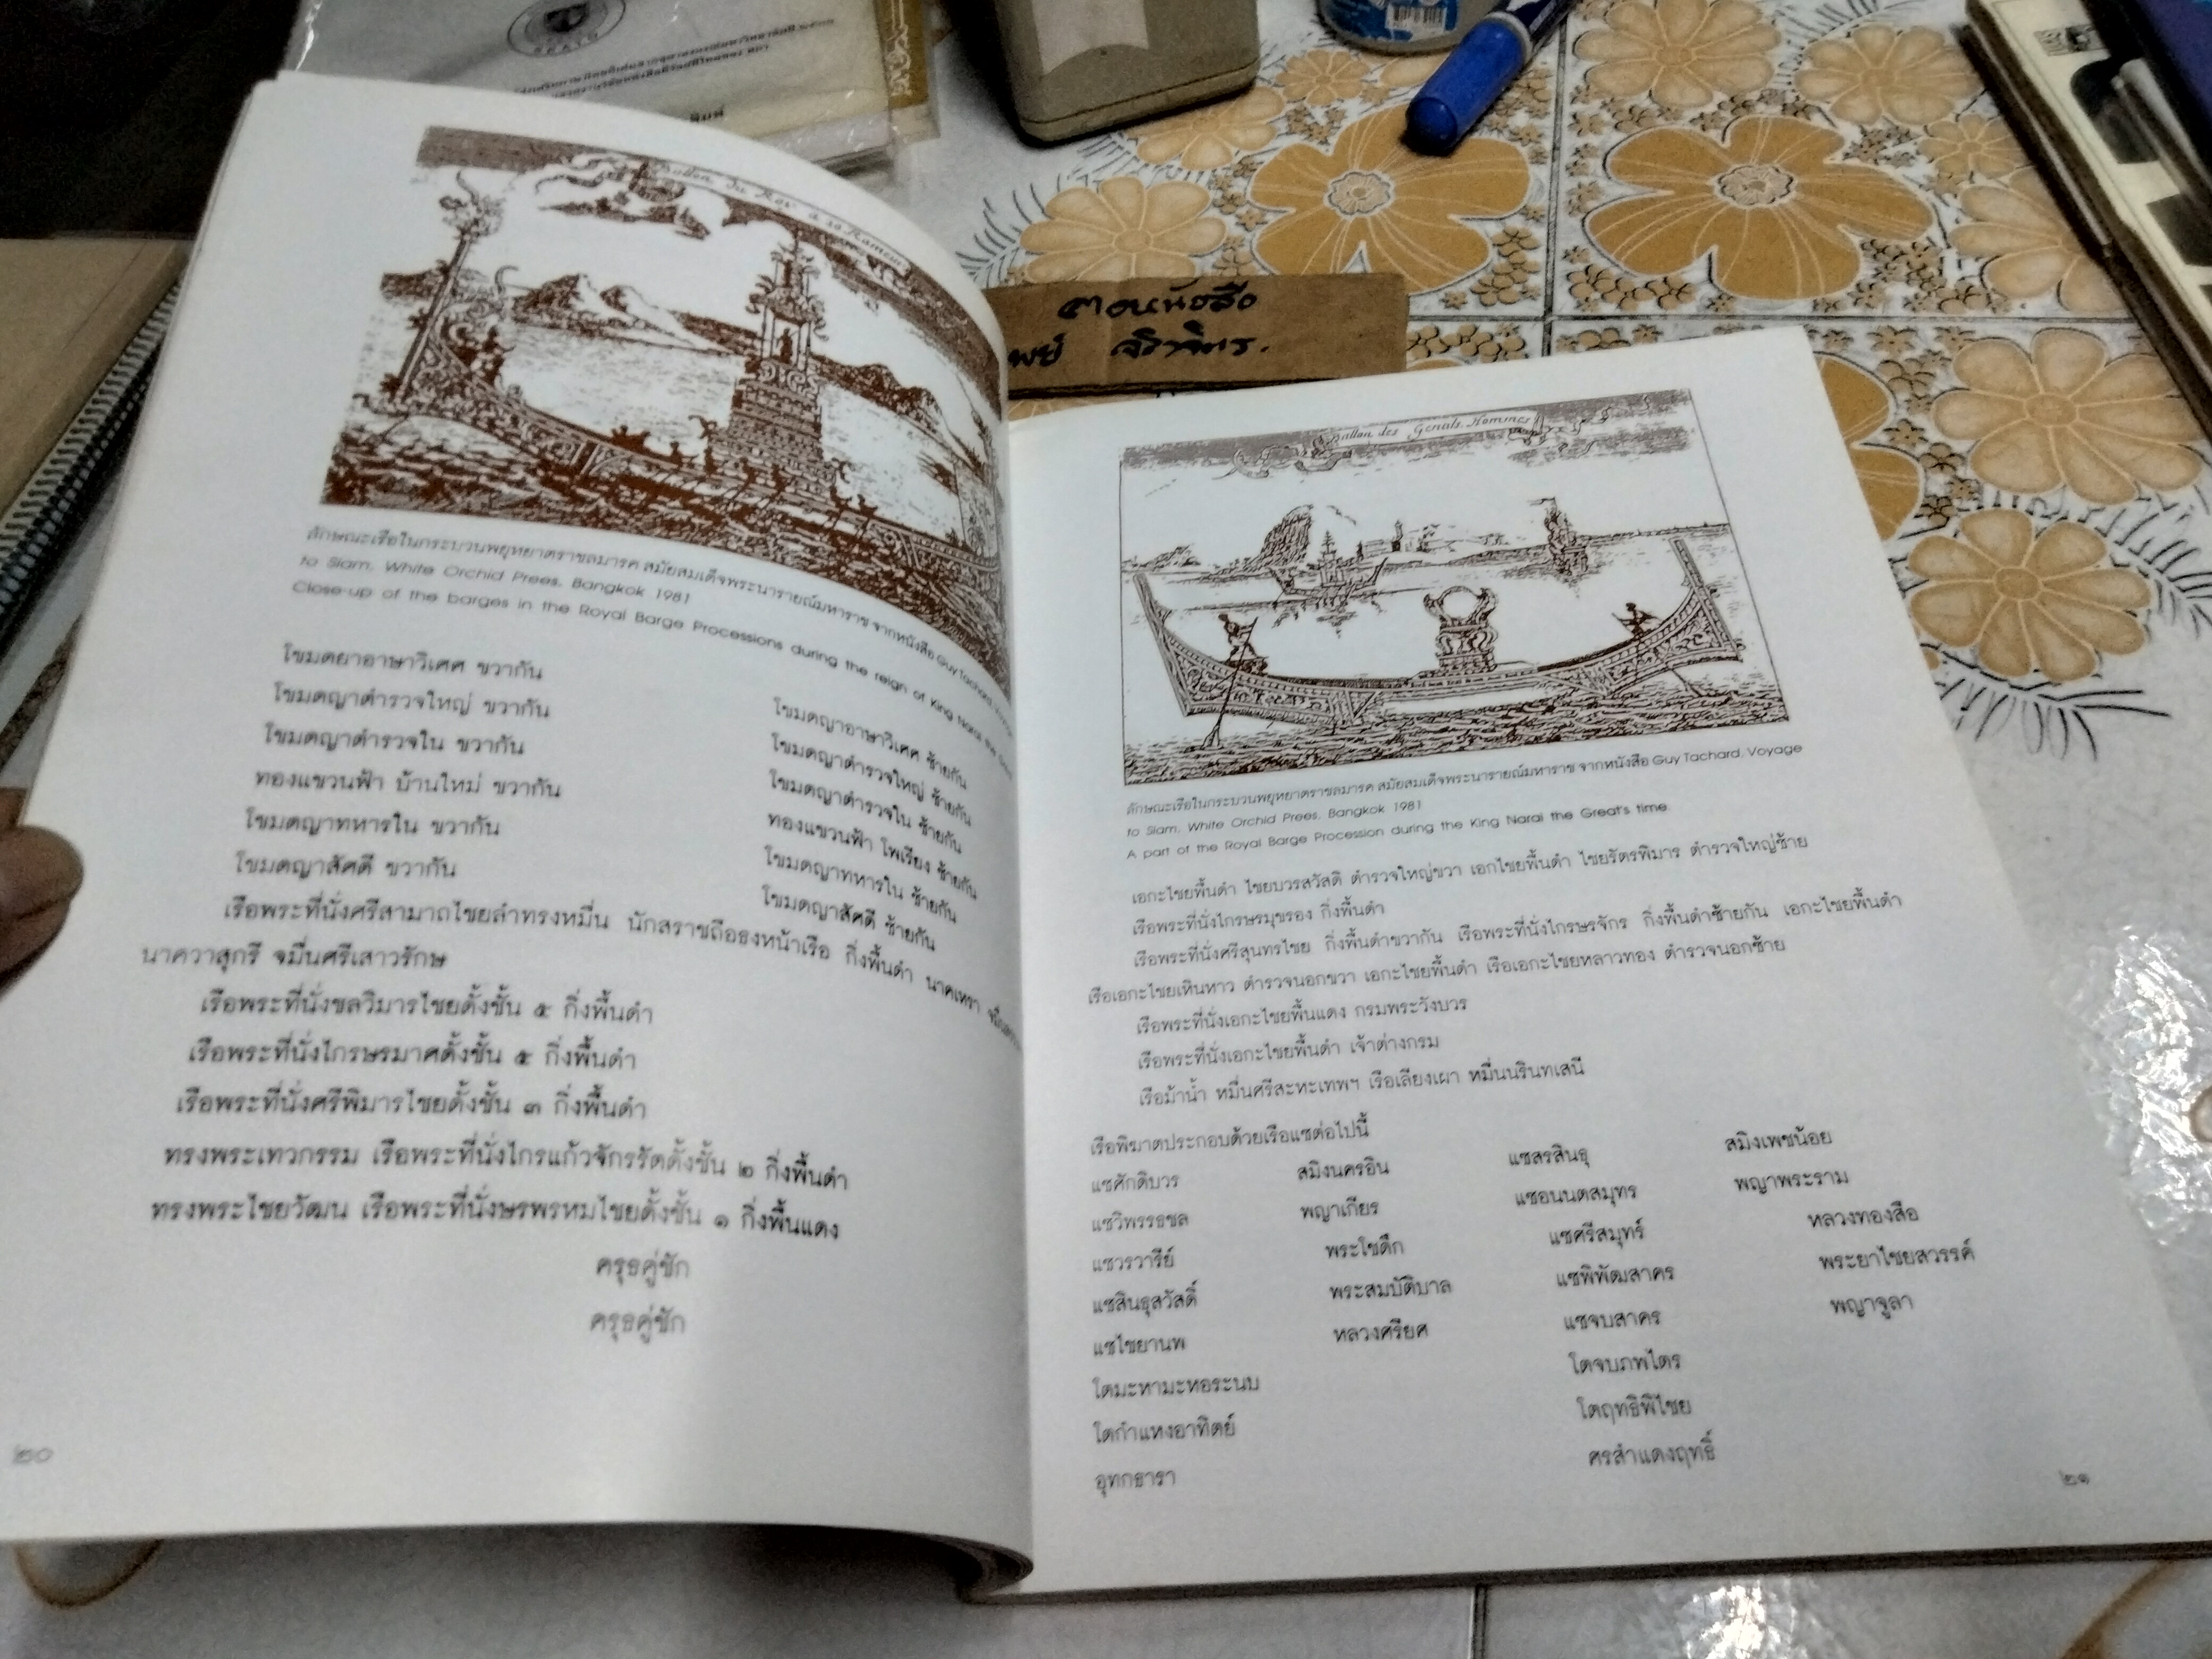 ตอหนังสือ
Ballon du Roy a 20 Rameurs
ลักษณะเรือในกระบวนพยุหยาตราชลมารค สมัยสมเด็จพระนารายณ์มหาราช จากหนังสือ Guy Tachard,
to Siam, White Orchid Prees, Bangkok 1981
Close-up of the barges in the Royal Barge Processions during the reign of King Narai the
โขมดยาอาษาวิเศศ ขวากัน
โขมดญาอาษาวิเศศ ซ้ายกัน
โขมดญาตำรวจใหญ่ ขวากัน
โขมดญาตำรวจใหญ่ ซ้ายกัน
โขมดญาตำรวจใน ขวากัน
โขมดญาตำรวจใน ซ้ายกัน
ทองแขวนฟ้า บ้านใหม่ ขวากัน
ทองแขวนฟ้า โพเรียง ซ้ายกัน
โขมดญาทหารใน ขวากัน
โขมดญาทหารใน ซ้ายกัน
โขมดญาสัศดี ขวากัน
โขมดญาสัศดี ซ้ายกัน
เรือพระที่นั่งศรีสามาถไชยลำทรงหมื่น นักสราชถือธงหน้าเรือ กิ่งพื้นดำ นาคเหรา
นาควาสุกรี จมื่นศรีเสาวรักษ
เรือพระที่นั่งชลวิมารไชยตั้งชั้น ๕ กิ่งพื้นดำ
เรือพระที่นั่งไกรษรมาศตั้งชั้น ๕ กิ่งพื้นดำ
เรือพระที่นั่งศรีพิมารไชยตั้งชั้น ๓ กิ่งพื้นดำ
ทรงพระเทวกรรม เรือพระที่นั่งไกรแก้วจักรรัตตั้งชั้น ๒ กิ่งพื้นดำ
ทรงพระไชยวัฒน เรือพระที่นั่งษรพรหมไชยตั้งชั้น ๑ กิ่งพื้นแดง
ครุธคู่ชัก
ครุธคู่ชัก
๒๐
Ballon des Gentils Hommes
ลักษณะเรือในกระบวนพยุหยาตราชลมารค สมัยสมเด็จพระนารายณ์มหาราช จากหนังสือ Guy Tachard, Voyage
to Siam, White Orchid Prees, Bangkok 1981
A part of the Royal Barge Procession during the King Narai the Great's time.
เอกะไชยพื้นดำ ไชยบวรสวัสดิ ตำรวจใหญ่ขวา เอกไชยพื้นดำ ไชยรัตรพิมาร ตำรวจใหญ่ซ้าย
เรือพระที่นั่งไกรษรมุขรอง กิ่งพื้นดำ
เรือพระที่นั่งศรีสุนทรไชย กิ่งพื้นดำขวากัน เรือพระที่นั่งไกรษรจักร กิ่งพื้นดำซ้ายกัน เอกะไชยพื้นดำ
เรือเอกะไชยเหินหาว ตำรวจนอกขวา เอกะไชยพื้นดำ เรือเอกะไชยหลาวทอง ตำรวจนอกซ้าย
เรือพระที่นั่งเอกะไชยพื้นแดง กรมพระวังบวร
เรือพระที่นั่งเอกะไชยพื้นดำ เจ้าต่างกรม
เรือม้าน้ำ หมื่นศรีสะหะเทพฯ เรือเลียงเผา หมื่นนรินทเสนี
เรือพิฆาตประกอบด้วยเรือแซต่อไปนี้
แซศักดิบวร สมิงนครอิน แซสรสินธุ สมิงเพชน้อย
แซวิพรรธชล พญาเกียร แซอนนตสมุทร พญาพระราม
แซวรวารีย์ พระโชดึก แซศรีสมุทร์ หลวงทองสือ
แซสินธุสวัสดิ์ พระสมบัติบาล แซพิพัฒสาคร พระยาไชยสวรรค์
แซไชยานพ หลวงศรียศ แซจบสาคร พญาจูลา
โตมะหามะหอระนบ โตจบภพไตร
โตกำแหงอาทิตย์ โตฤทธิพิไชย
อุทกธารา ศรสำแดงฤทธิ์
๒๑